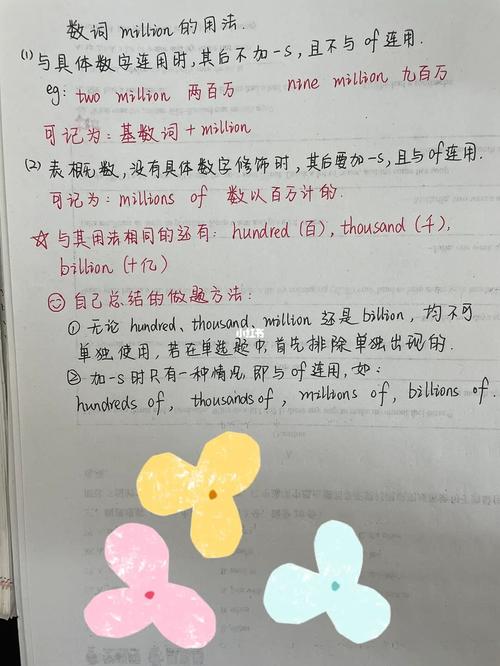 数词 million 的用法.
(1) 与具体数字连用时,其后不加-s,且不与 of 连用.
eg: two million 两百万 nine million 九百万
可记为:基数词 + million
(2) 表概数,没有具体数字修饰时,其后要加-s,且与of连用.
可记为:millions of 数以百万计的.
☆ 与其用法相同的还有: hundred (百), thousand (千),
billion (十亿)
自己总结的做题方法:
① 无论 hundred、thousand、million 还是 billion, 均不可
单独使用,若在单选题中,首先排除单独出现的.
② 加-s 时只有一种情况,即与 of 连用,如:
hundreds of, thousands of, millions of, billions of.
小红书